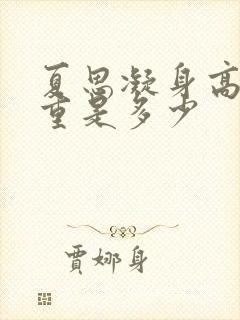 夏思凝身高
重是多少
贾娜身